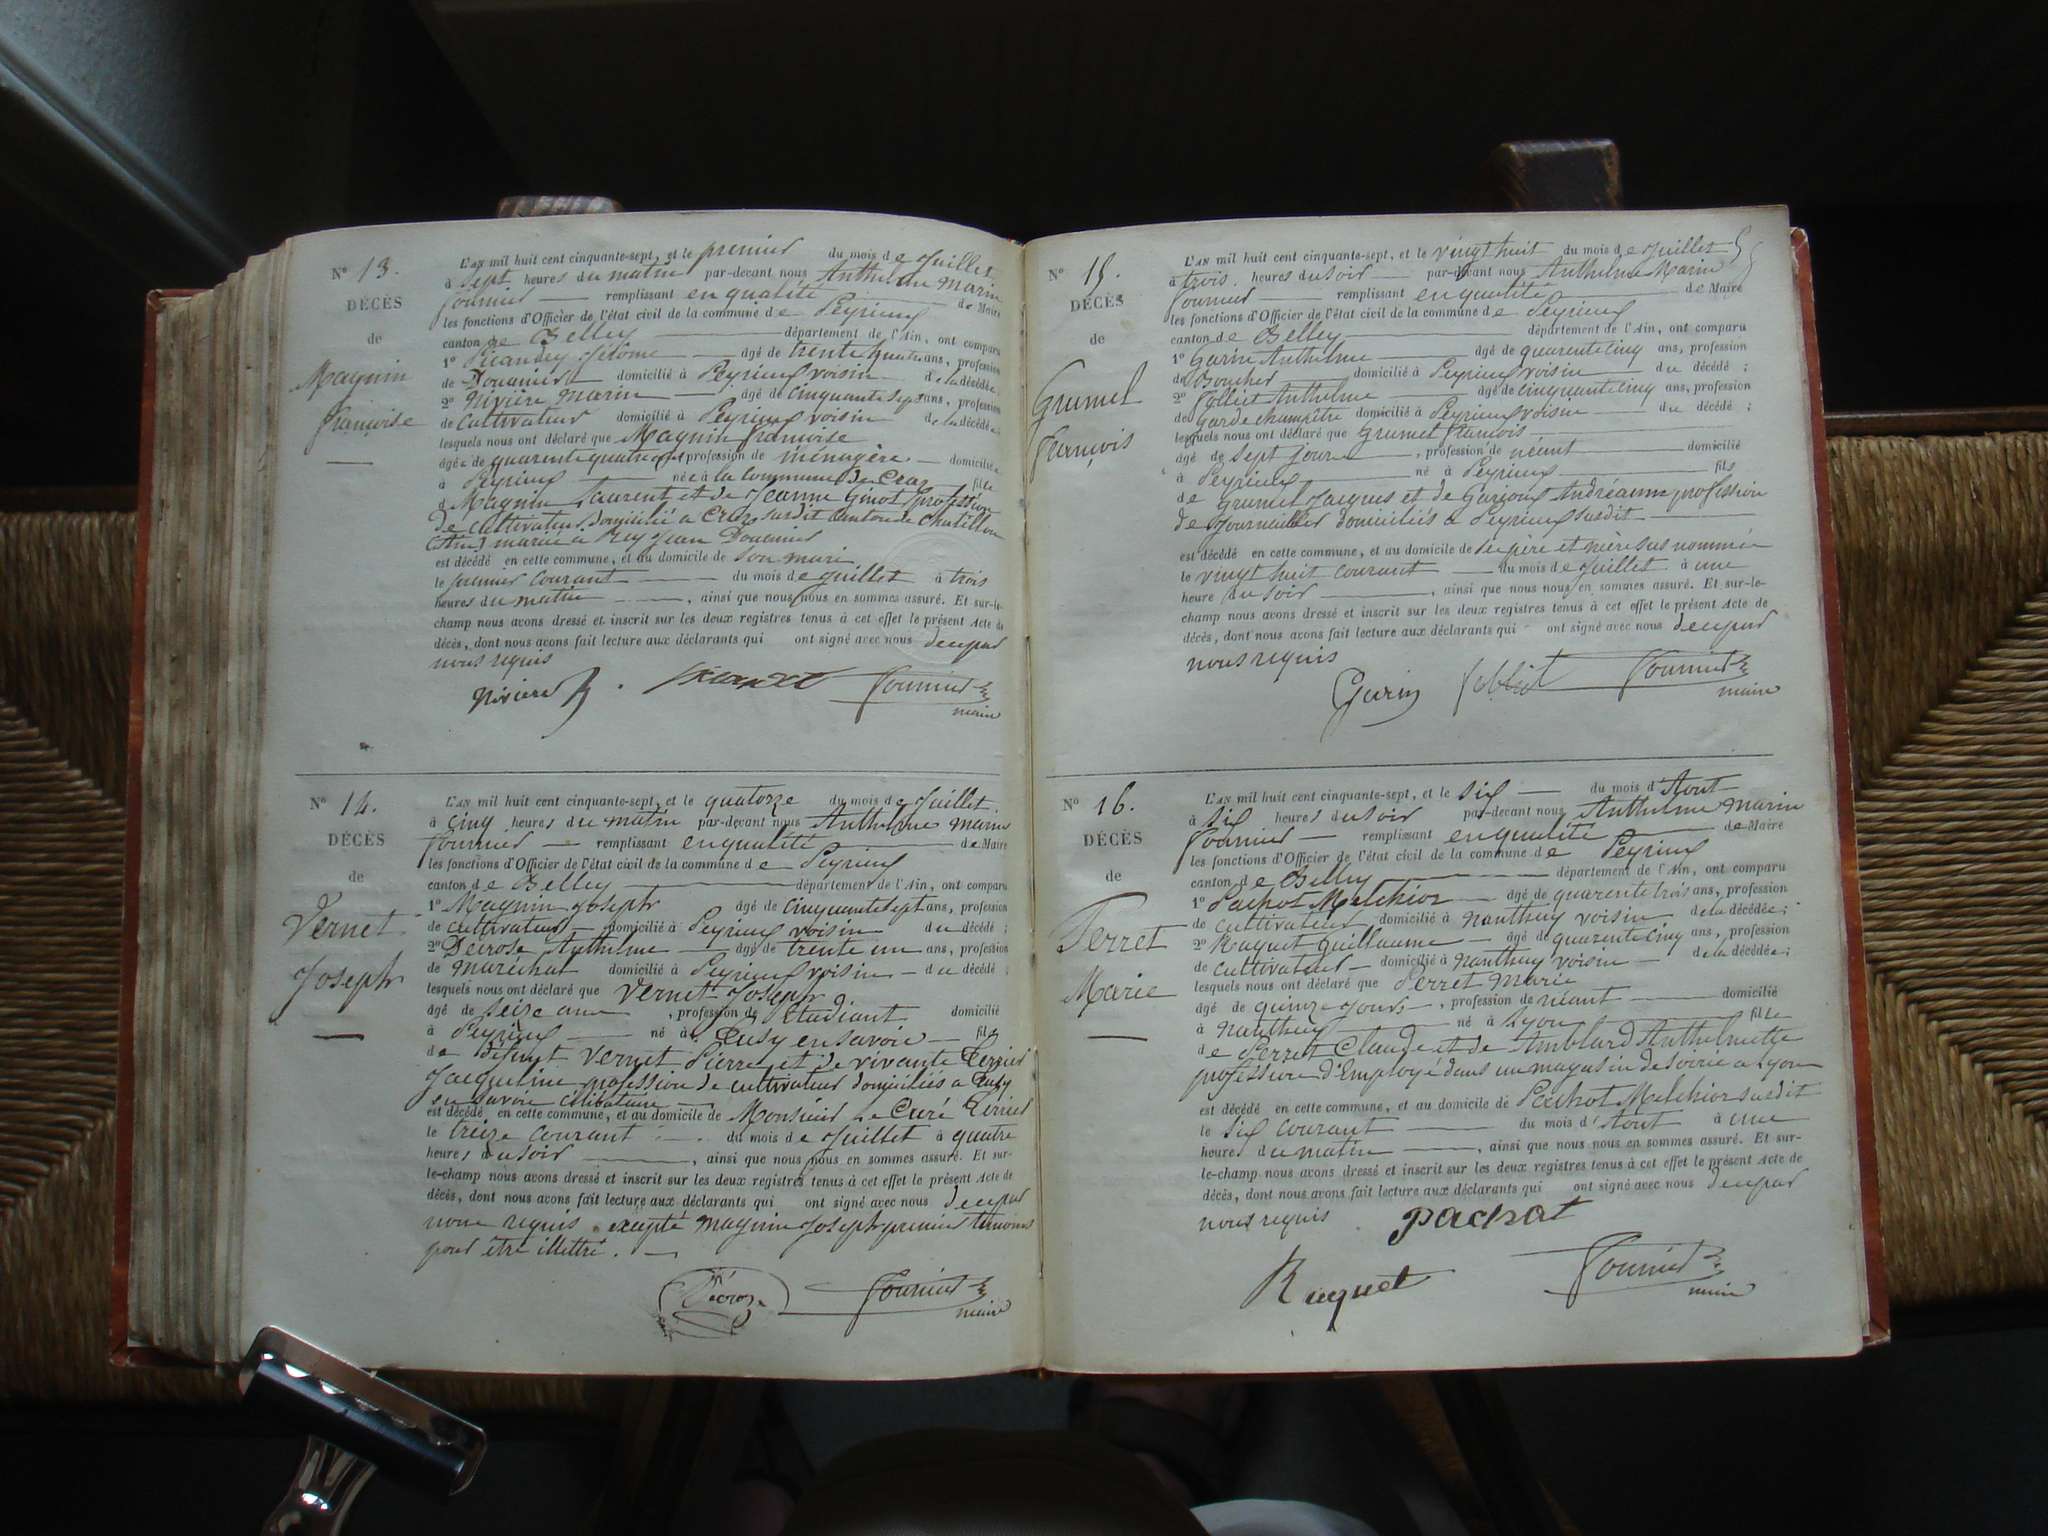 N° 13.
DÉCÈS
de
Magnin
françoise
L'AN mil huit cent cinquante-sept, et le premier du mois de Juillet
à sept heures du matin par-devant nous Anthelme Marin
fournier remplissant en qualité de Maire
les fonctions d'Officier de l'état civil de la commune de Peyrieux
canton de Belley département de l'Ain, ont comparu
1° Jérôme âgé de trente quatre ans, profession
de Douanier domicilié à Peyrieux voisin de la décédée
2° Nivière Marin âgé de cinquante sept ans, profession
de cultivateur domicilié à Peyrieux voisin de la décédée
lesquels nous ont déclaré que Magnin françoise
âgée de quarente quatre ans profession de ménagère domiciliée
à Peyrieux née à la Commune de Craz fille
de Magnin Laurent et de Jeanne Ginot profession
de cultivateur domicilié a Craz susdit Canton de Chatillon
(Ain) mariée a Rey Jean Douanier
est décédé en cette commune, et au domicile de son mari
le premier courant du mois de Juillet à trois
heures du matin, ainsi que nous nous en sommes assuré. Et sur-le-
champ nous avons dressé et inscrit sur les deux registres tenus à cet effet le présent Acte de
décès, dont nous avons fait lecture aux déclarants qui ont signé avec nous de ce par
nous requis
Nivière fournier
maire
N° 14.
DÉCÈS
de
Vernet
Joseph
L'AN mil huit cent cinquante-sept, et le quatorze du mois de Juillet
à cinq heures du matin par-devant nous Anthelme Marin
fournier remplissant en qualité de Maire
les fonctions d'Officier de l'état civil de la commune de Peyrieux
canton de Belley département de l'Ain, ont comparu
1° Magnin Joseph âgé de cinquante sept ans, profession
de cultivateur domicilié à Peyrieux voisin du décédé ;
2° Decrose Anthelme âgé de trente un ans, profession
de maréchal domicilié à Peyrieux voisin du décédé ;
lesquels nous ont déclaré que Vernet Joseph
âgé de seize ans, profession de Etudiant domicilié
à Peyrieux né à Cusy en savoie fils
de défunt Vernet Pierre et de vivante Terrier
Jacqueline profession de cultivateur domiciliés a Cusy
en savoie célibataire
est décédé en cette commune, et au domicile de Monsieur le Curé Terrier
le treize courant du mois de Juillet à quatre
heures du soir, ainsi que nous nous en sommes assuré. Et sur-
le-champ nous avons dressé et inscrit sur les deux registres tenus à cet effet le présent Acte de
décès, dont nous avons fait lecture aux déclarants qui ont signé avec nous de ce par
nous requis excepté Magnin Joseph premier témoins
pour être illettré.
Décroze fournier
maire
N° 15.
DÉCÈS
de
Grumel
françois
L'AN mil huit cent cinquante-sept, et le vingt huit du mois de Juillet
à trois heures du soir par-devant nous Anthelme Marin
fournier remplissant en qualité de Maire
les fonctions d'Officier de l'état civil de la commune de Peyrieux
canton de Belley département de l'Ain, ont comparu
1° Garin Anthelme âgé de quarente cinq ans, profession
de Boucher domicilié à Peyrieux voisin du décédé ;
2° Anthelme âgé de cinquante cinq ans, profession
de Garde champêtre domicilié à Peyrieux voisin du décédé ;
lesquels nous ont déclaré que Grumel françois
âgé de sept jours, profession de néant domicilié
à Peyrieux né à Peyrieux fils
de Grumel Jacques et de Andréanne profession
de Journallier domiciliés a Peyrieux susdit
est décédé en cette commune, et au domicile de ses père et mère sus nommés
le vingt huit courant du mois de Juillet à une
heure du soir, ainsi que nous nous en sommes assuré. Et sur-le-
champ nous avons dressé et inscrit sur les deux registres tenus à cet effet le présent Acte de
décès, dont nous avons fait lecture aux déclarants qui ont signé avec nous de ce par
nous requis
Garin fournier
maire
N° 16.
DÉCÈS
de
Perret
Marie
L'AN mil huit cent cinquante-sept, et le six du mois d'Aout
à six heures du soir par-devant nous Anthelme Marin
fournier remplissant en qualité de Maire
les fonctions d'Officier de l'état civil de la commune de Peyrieux
canton de Belley département de l'Ain, ont comparu
1° Pachot Melchior âgé de quarente trois ans, profession
de cultivateur domicilié à Nanthuy voisin de la décédée ;
2° Ruquet Guillaume âgé de quarente cinq ans, profession
de cultivateur domicilié à Nanthuy voisin de la décédée ;
lesquels nous ont déclaré que Perret Marie
âgé de quinze jours, profession de néant domicilié
à Nanthuy né à Lyon fille
de Perret Claude et de Amblard Anthelmette
profession d'Employé dans un magasin de soirie a Lyon
est décédé en cette commune, et au domicile de Pachot Melchior susdit
le six courant du mois d'Aout à une
heure du matin, ainsi que nous nous en sommes assuré. Et sur-
le-champ nous avons dressé et inscrit sur les deux registres tenus à cet effet le présent Acte de
décès, dont nous avons fait lecture aux déclarants qui ont signé avec nous de ce par
nous requis Pachot
Ruquet fournier
maire